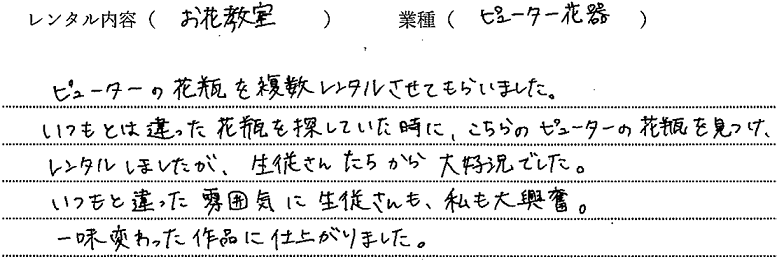 レンタル内容（ お花教室 ） 業種（ ピューター花器 ）
ピューターの花瓶を複数レンタルさせてもらいました。
いつもとは違った花瓶を探していた時に、こちらのピューターの花瓶を見つけ、
レンタルしましたが、生徒さんたちから大好況でした。
いつもと違った雰囲気に生徒さんも、私も大興奮。
一味変わった作品に仕上がりました。